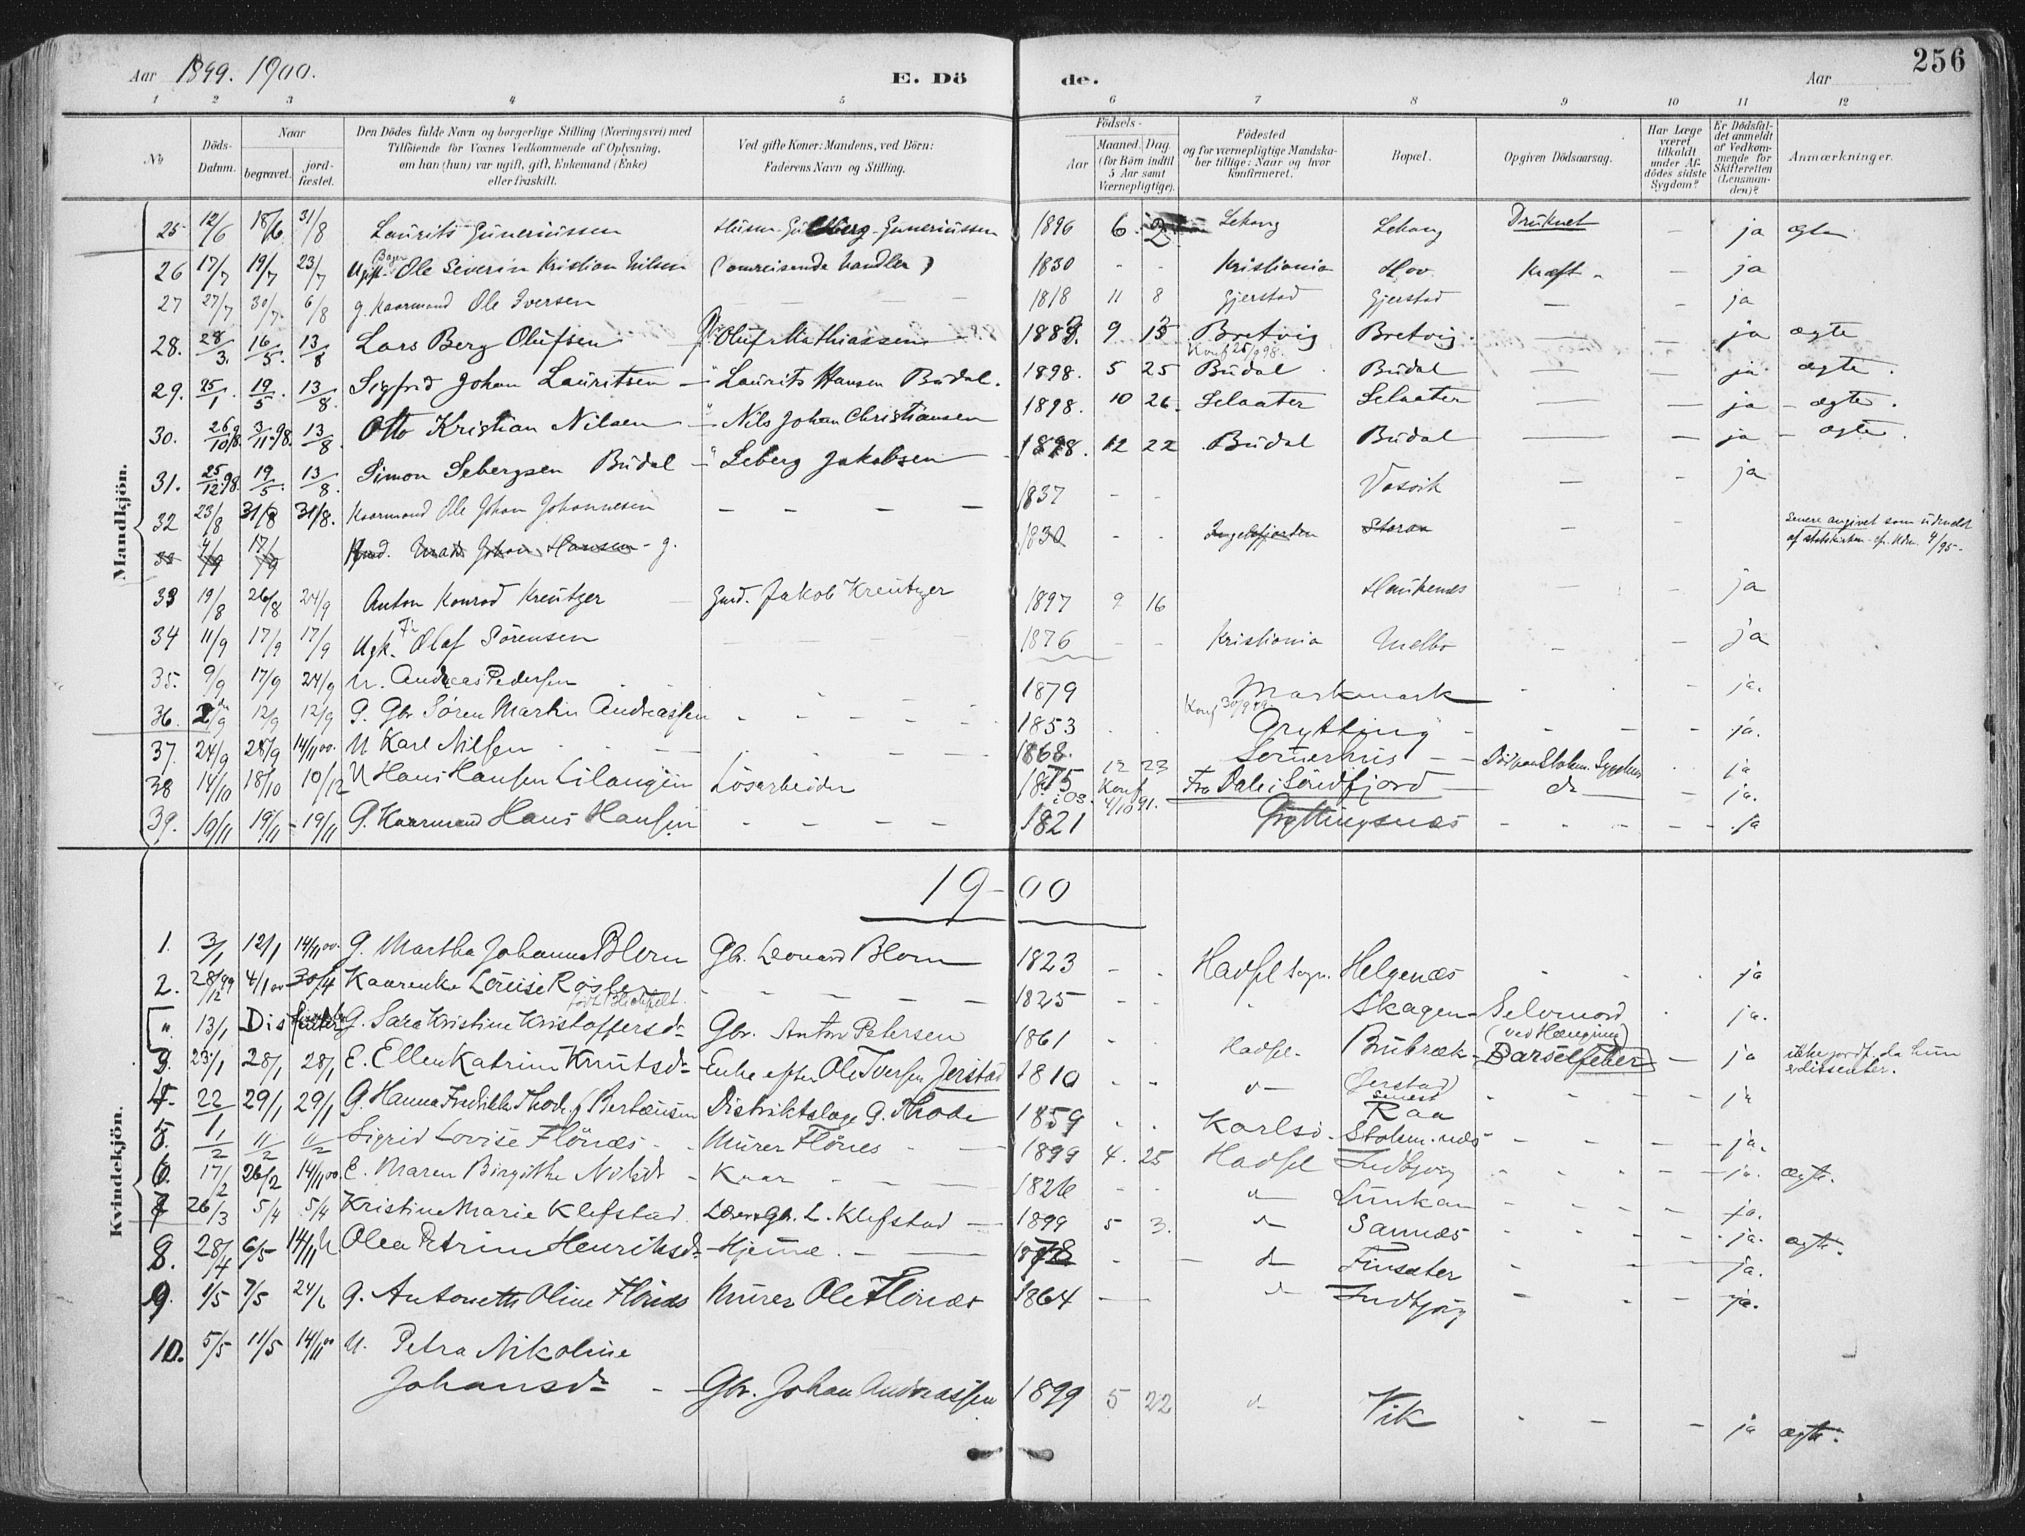 Aar 1899. 1900. E. Dö de. Aar 256
1 2 3 4 5 6 7 8 9 10 11 12
No Döds-Datum. Naar begravet. jord-fæstet. Den Dödes fulde Navn og borgerlige Stilling (Næringsvei) med Tilföiende for Voxnes Vedkommende af Oplysning, om han (hun) var ugift, gift, Enkemand (Enke) eller fraskilt. Ved gifte Koner: Mandens, ved Börn: Faderens Navn og Stilling. Födsels- Aar Maaned. Dag (for Börn indtil 5 Aar samt Værnepligtige). Födested og for værnepligtige Mandskaber tillige: Naar og hvor konfirmeret. Bopæl. Opgiven Dödsaarsag. Har Læge været tilkaldt under Afdödes sidste Sygdom? Er Dödsfaldet anmeldt af Vedkommende for Skifteretten (Lensmanden)? Anmærkninger.
Mandkjön.
25 12/6 18/6 31/8 Laurits Guneriussen Guneriussen 1896 6. 2 Lekang Lekang Druknet - ja ægte
26 17/7 19/7 23/7 Ugk. Bager Ole Severin Kristian Nilsen (omreisende handler) 1830 - - Kristiania Hov. Kræft - - ja
27 27/7 30/7 6/8 g. Kaarmand Ole Iversen 1818 11 8 Gjerstad Gjerstad - - ja
28. 28/3. 16/5. 13/8 Lars Berg Olufsen Oluf Mathiassen 1883. 9 13 Bretvig Konf 25/9 98. Bretvig - - ja ægte
29. 25/1. 19/5. 13/8. Sigfrid Johan Lauritsen - " Laurits Hansen Budal. 1898. 5 25 Budal Budal - - ja ægte.
30. 26/10 98. 3/11 98. 13/8. Otto Kristian Nilsen - " Nils Johan Christiansen 1898. 10 26. Selaater Selaater - - ja - ægte.
31. 25/12 98. 19/5. 13/8. Simon Sebergsen Budal - " Seberg Jakobsen 1898. 12 22 Budal Budal - - ja - ægte.
32 23/8 31/8 31/8. Kaarmand Ole Johan Johannesen - - - - 1837 - - Vasvik - - ja
33 4/9 17/9 Mads Johan Hansen - g. 1830 Ingelsfjorden Storaa - - Senere angivet som udmeldt af statskirken - cf. 4/95.
33 19/8 26/8 24/9 Anton Konrad Kreutzer - Gmd. Jakob Kreutzer 1897 9 16 Haukenes - - ja
34 11/9 17/9 17/9 Ugk. Olaf Sörensen 1876 Kristiania Melbo - - ja
35. 9/9 17/9 24/9 U. Andreas Pedersen 1879 Markmark - - ja.
36. 2/9 12/9 12/9 G. Gbr Sören Martin Andreassen - - - - 1853 Konf 30/9 Grytting - - ja.
37. 24/9 28/9 14/11 00. U Karl Nilsen 1868. 12 23 - - Död paa Stokm. Sygehus ja
38 14/10 18/10 10/12 U Hans Hansen Lilangön Lösarbeider 1875 Konf 4/10 91. Fra Dale i Söndfjord do - ja.
39. 19/11 19/11 - 19/11 G. Kaarmand Hans Hansen - - - - 1821 Gryttingsnæs - - - ja
19-00
Kvindekjön.
1. 3/1 12/1 14/11 00. G. Martha Johanna Blom Gbr. Leonard Blom 1823 - - Hadsel sogn. Helgenæs - - ja
2. 28/12 99 4/1 00 30/4 Kaarenke Lovise - - - - 1825 - - " Skagen Selvmord (ved Hængning) ja.
" 13/1 Dissenter G. Sara Kristine Kristoffersdr Gbr. Anton Petersen 1861 - - Hadsel - Brubræk - Barselfeber - ja ikke jordf. da hun er dissenter.
3. 23/1 28/1 28/1 E. Ellen Katrine Knutsdr Enke efter Ole Iversen Jerstad 1810 - - d - Gjerstad - - ja
4. 22/1 29/1 29/1 G. Hanna Fredrikke Thode f. Berteusen Distriktslæge G. Thode 1859 - - Karlsö - senest Raa Stokm.næs - - ja.
5. 1/2 11/2 11/2 Sigrid Lovise Flönæs - Murer Flönes - 1899 4. 25 Hadsel Indbjorg - - ja. ægte.
6. 17/2 26/2 14/11 00. E. Maren Birgithe Nilsdr - Kaar - - 1826 - - d Lunkan - - ja.
7 26/3 5/4 5/4 Kristine Marie Klefstad. Lærer Gbr. L. Klefstad - 1899 5 3. d Sannæs - - ja. ægte.
8. 28/4 6/5 14/11 Olea Petrine Henriksdr - Hjemme. - - 1878 - - d Finsæter - - ja.
9. 1/5 7/5 24/6 G. Antonette Oline Flönæs Murer Ole Flönæs 1864 - - d Indbjorg - - ja.
10. 5/5 11/5 14/11 00 U. Petra Nikoline
Johansdr - Gbr. Johan Andreassen 1899 5 22 d Vik - - ja ægte.